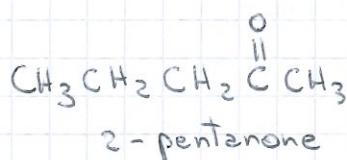 O
||
CH₃CH₂CH₂CCH₃
2-pentanone